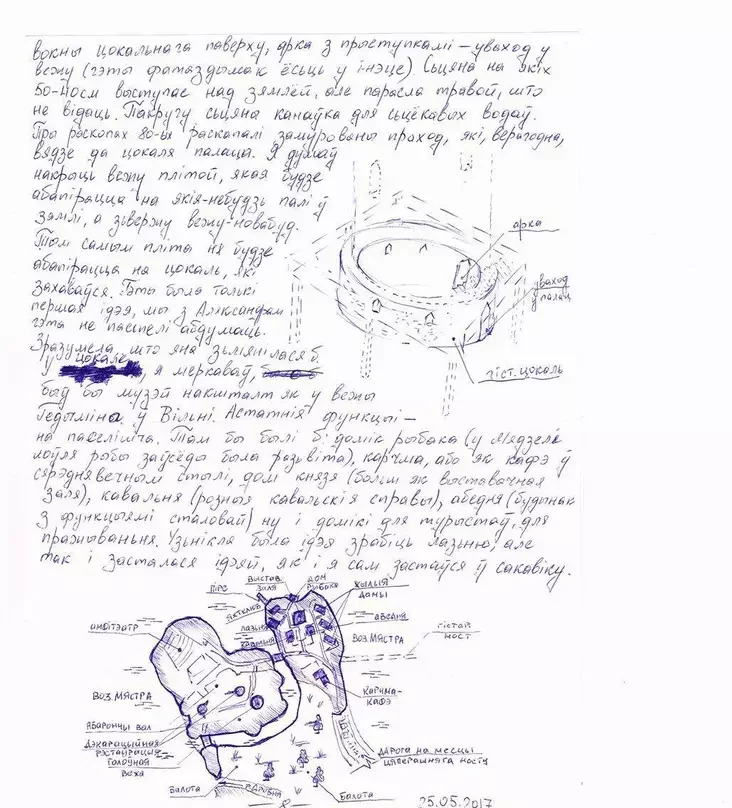 вокны цокальнага паверху, арка з прыступкамі – уваход у
вежу (гэты фотаздымак ёсьць у і-нэце). Сьцяна на якіх
50-40см выступае над зямлёй, але парасла травой, што
не відаць. Пакругу сьцяна канаўка для сьцёкавых водаў.
Пры раскопах 80-ых раскапалі замураваны праход, які, верагодна,
вядзе да цокаля палаца. Я думаў
накрыць вежу плітой, якая будзе
абапірацца на якія-небудзь палі ў
зямлі, а зьверху вежу-новабуд.
Тым самым пліта не будзе
абапірацца на цокаль, які
захаваўся. Гэта была толькі
першая ідэя, мы з Аляксандрам
гэта не пасьпелі абдумаць.
Зразумела, што яна зьмянілася б.
У цокале, я меркаваў,
быў бы музэй накшталт як у вежы
Гедыміна ў Вільні. Астатнія функцыі –
на паселішча. Там бы былі б: домік рыбака (у Мядзеле
лоўля рыбы заўсёды была разьвіта), карчма, або як кафэ ў
сярэднявечным стылі, дом князя (больш як выставачная
заля), кавальня (розныя кавальскія справы), абедня (будынак
з функцыямі сталовай) ну і домікі для турыстаў, для
пражываньня. Узьнікла была ідэя зрабіць лазьню, але
так і засталося ідэяй, як і я сам застаўся ў сакавіку.
арка
уваход
у палац
гіст. цоколь
пірс
выстав.
заля
дом
рыбака
жылыя
дамы
яхтклуб
амфітэатр
лазьня
кавальня
абедня
воз. Мястра
гістар.
мост
воз. Мястра
карчма-
кафэ
абарончы вал
дэкарацыйная
рэстаўрацыя
галоўная
вежа
дарога на месцы
цяперашняга мосту
балота
балота
25.05.2017